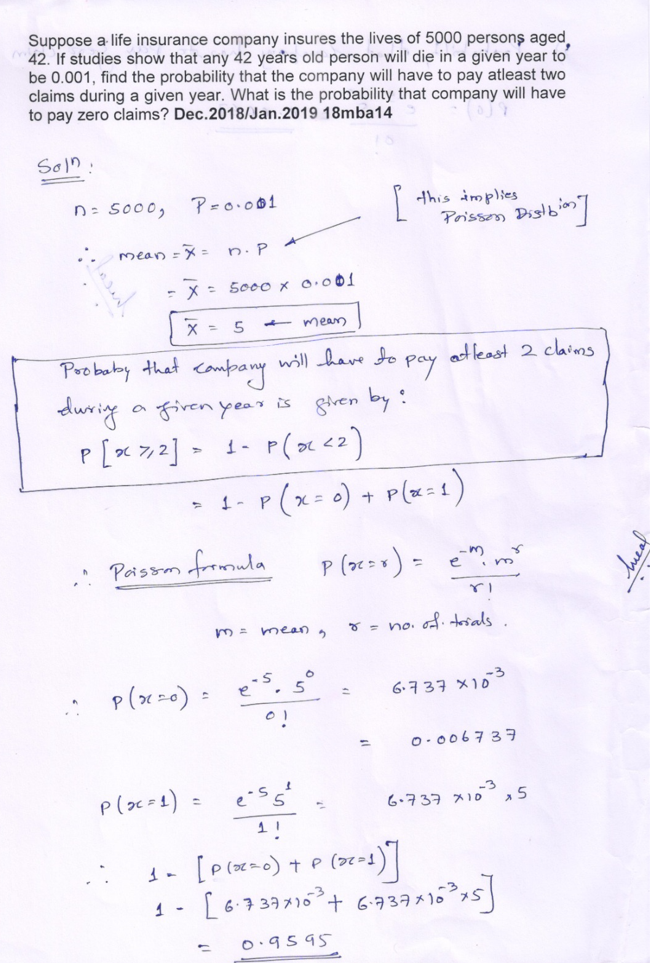 Suppose a life insurance company insures the lives of 5000 persons aged
42. If studies show that any 42 years old person will die in a given year to
be 0.001, find the probability that the company will have to pay atleast two
claims during a given year. What is the probability that company will have
to pay zero claims? Dec.2018/Jan.2019 18mba14
Soln:
n = 5000, P = 0.001 [this implies
Poisson Distbion]
∴ mean = x̄ = n.p
= x̄ = 5000 x 0.001
x̄ = 5 ← mean
Probaby that company will have to pay atleast 2 claims
during a given year is given by:
P[x ⩾ 2] = 1 - P(x < 2)
= 1 - P(x = 0) + P(x = 1)
∴ Poisson formula P(x=r) = e^-m . m^r / r!
m = mean, r = no. of. trials.
∴ P(x=0) = e^-5 . 5^0 / 0! = 6.737 x 10^-3
= 0.006737
P(x=1) = e^-5 5^1 / 1! = 6.737 x 10^-3 x 5
∴ 1 - [P(x=0) + P(x=1)]
1 - [6.737x10^-3 + 6.737x10^-3 x5]
= 0.9595